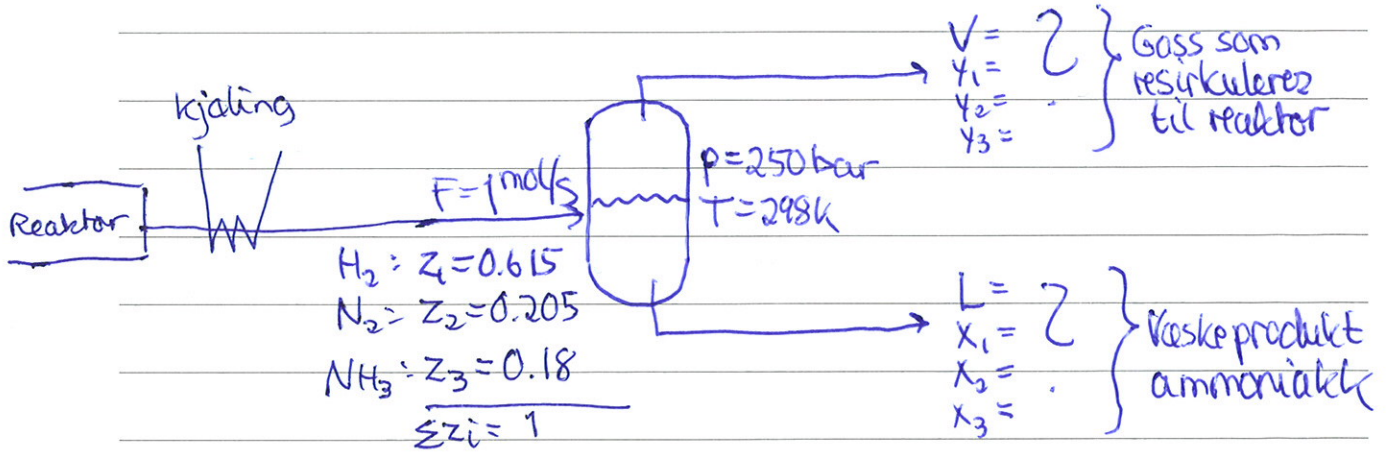 Reaktor
kjøling
F=1 mol/s
H₂: z₁=0.615
N₂: z₂=0.205
NH₃: z₃=0.18
Σzi=1
p=250 bar
T=298K
V= ?
y₁=
y₂=
y₃=
Gass som
resirkuleres
til reaktor
L= ?
x₁=
x₂=
x₃=
Væskeprodukt
ammoniakk